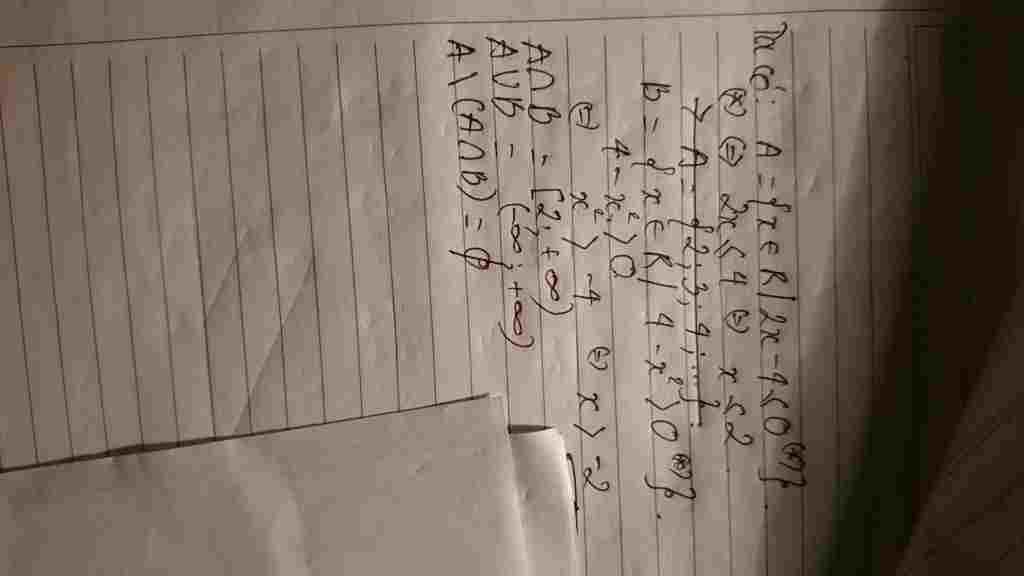 Ta có: A = {x ∈ R | 2x - 4 ≤ 0 (*)}.
(*) ⇔ 2x ≤ 4 ⇔ x ≤ 2
→ A = {2; 3; 4; ...}.
B = {x ∈ R | 4 - x² > 0 (*)}.
4 - x² > 0
⇔ x² > -4 ⇔ x > -2
A ∩ B = [2; +∞)
A ∪ B = (-∞; +∞)
A \ (A ∩ B) = ϕ